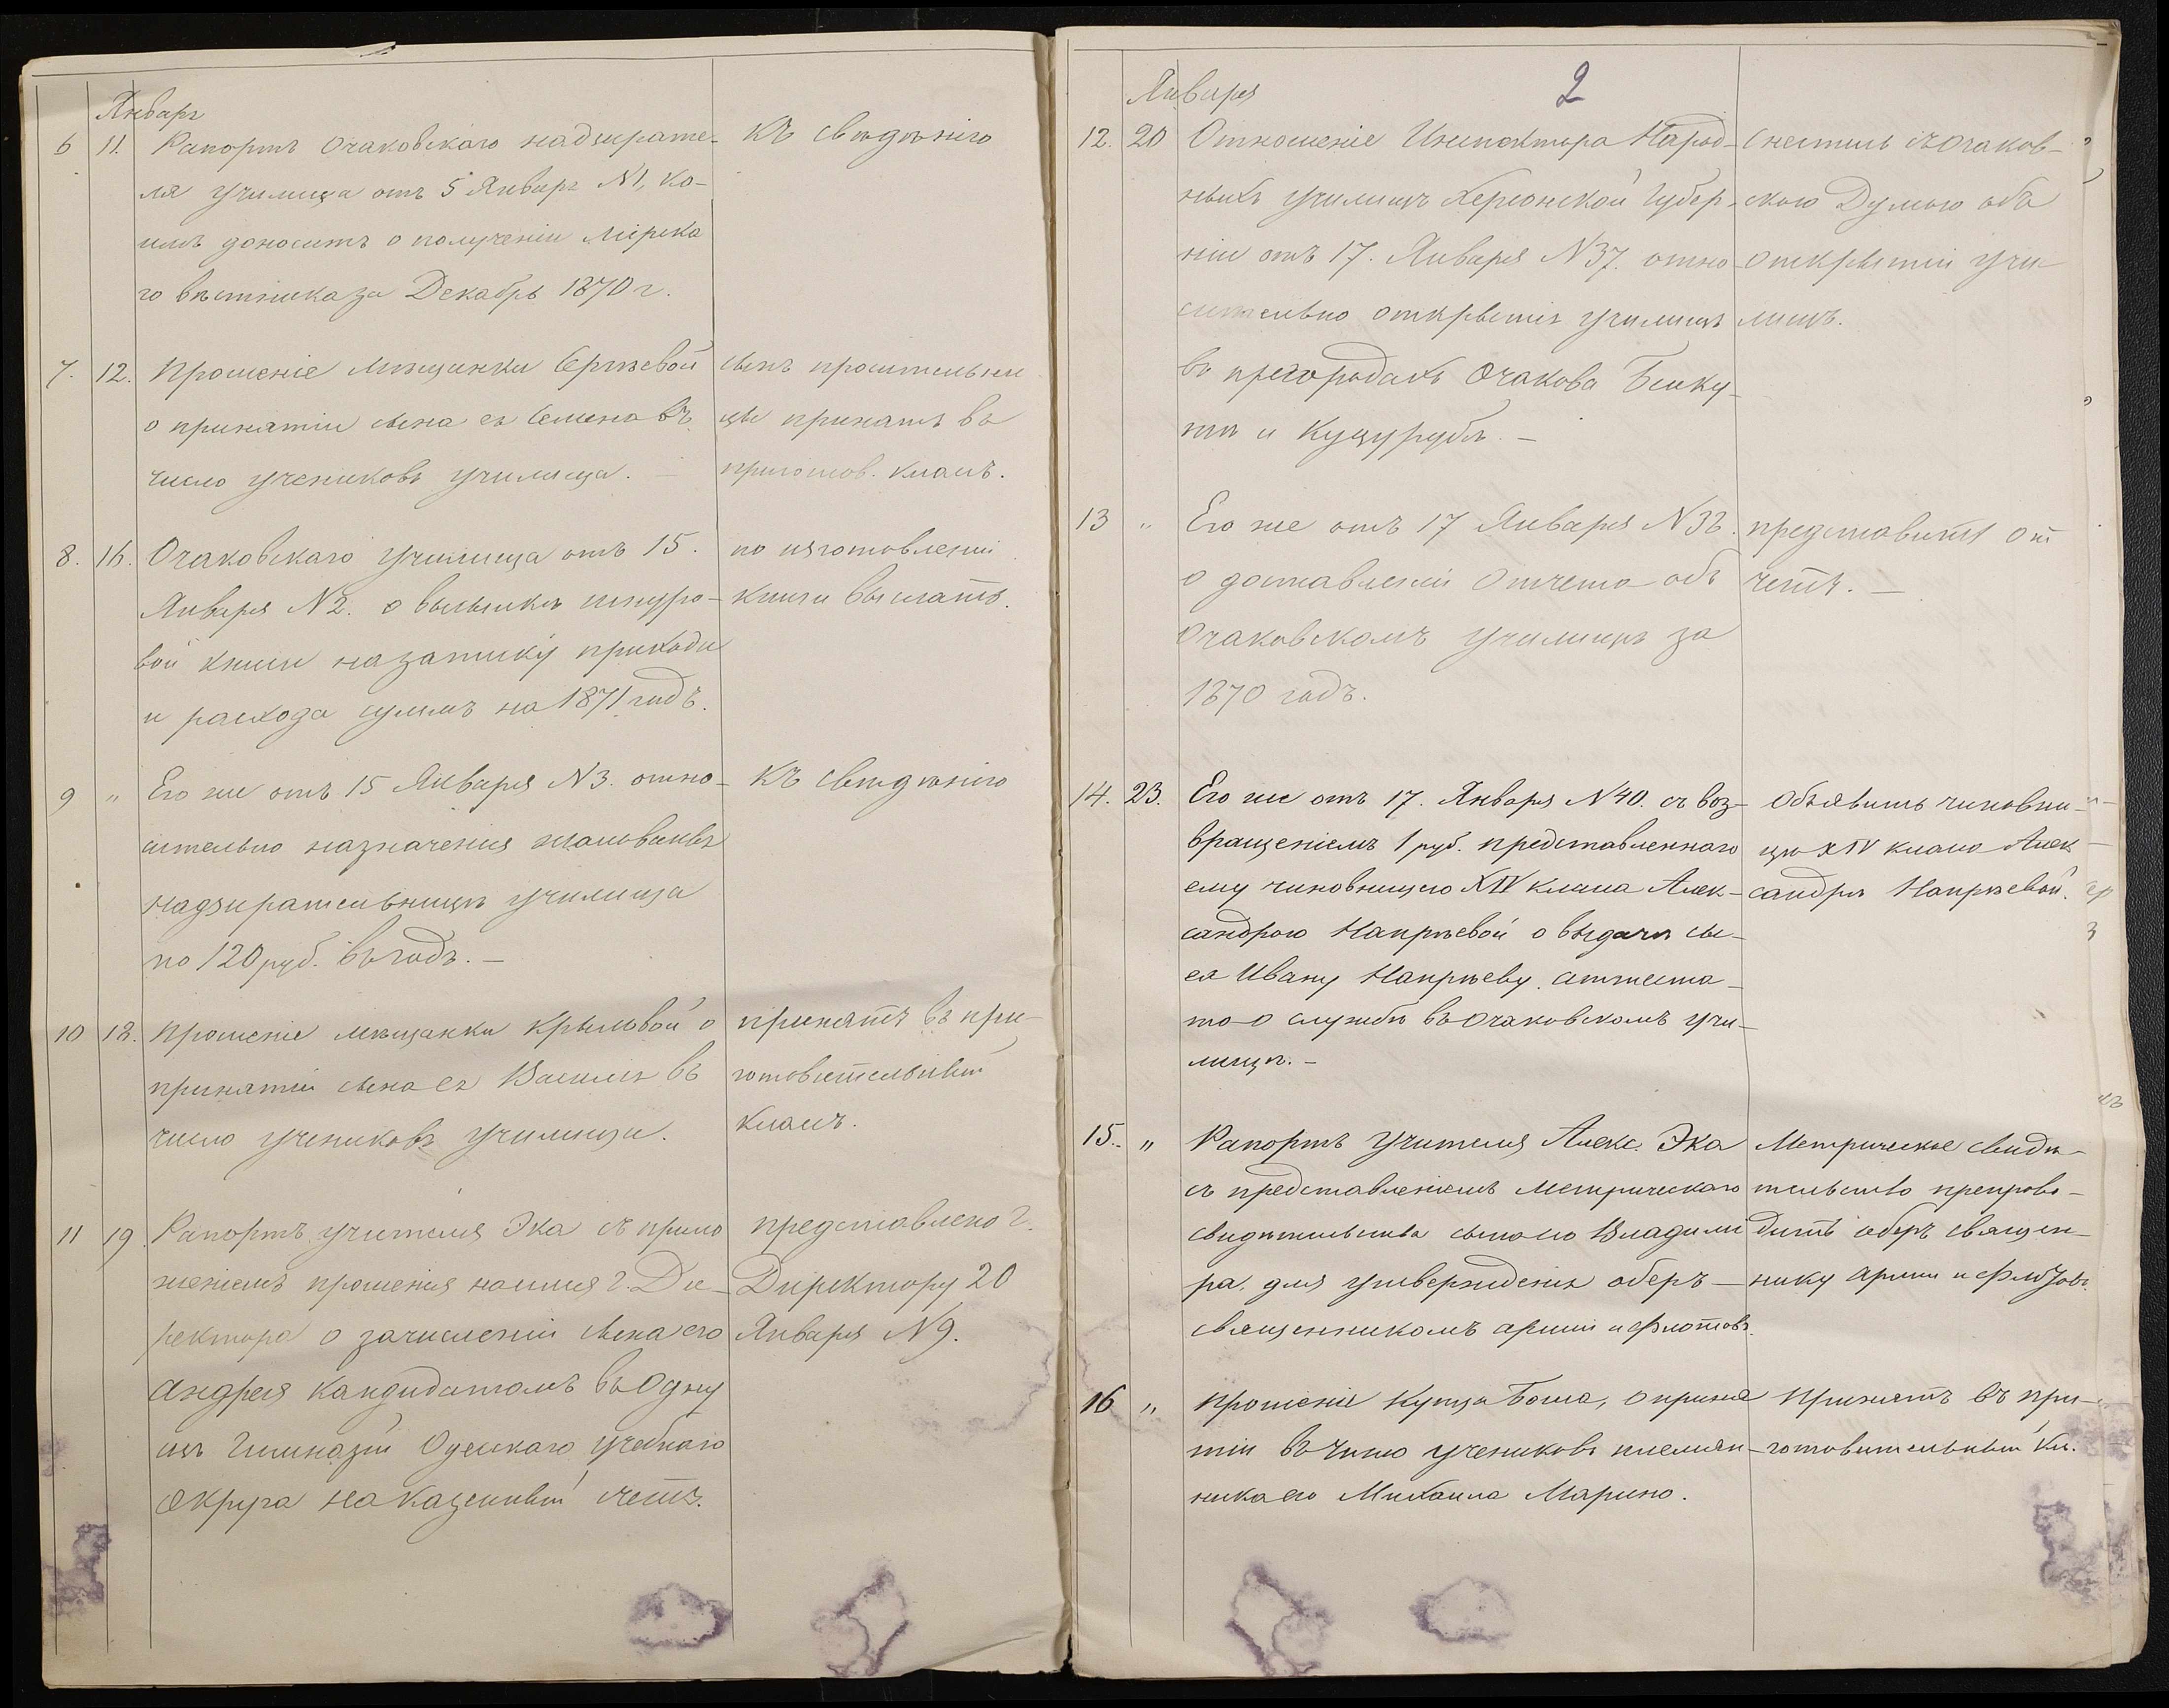 Январь
6 11. Рапортъ Очаковскаго надзирате-
ля училища отъ 5 Января №1, ко-
имъ доноситъ о полученіи Мірска
го вѣстника за Декабрь 1870 г.
къ свѣдѣнію
7. 12. Прошеніе мѣщанки Сергѣевой
о принятіи сына ея Семена въ
число учениковъ училища. —
сынъ проситель ни
цы принятъ въ
приготов. классъ.
8. 16. Очаковскаго училища отъ 15.
Января №2. о высылкѣ шнуро-
вой книги на записку прихода
и расхода суммъ на 1871 годъ.
по изготовленіи
книги выслать.
9 " Его же отъ 15 Января №3. отно-
сительно назначенія жалованья
надзирательницѣ училища
по 120 руб. въ годъ. —
Къ свѣдѣнію
10 18. Прошеніе мѣщанки Крыловой о
принятіи сына ея Василія въ
число учениковъ училища.
принятъ въ при-
готовительный
классъ.
11 19. Рапортъ учителя Эка съ прило
женіемъ прошенія на имя г. Ди-
ректора о зачисленіи сына его
Андрея кандидатомъ въ одну
изъ Гимназій Одесскаго учебнаго
округа на казенный счетъ.
представлено г.
Директору 20
Января №9.
2
Января
12. 20 Отношеніе Инспектора Народ-
ныхъ училищъ Херсонской Губер-
ніи отъ 17. Января №37. отно
сительно открытія училищъ
въ пригородахъ Очакова Бейку-
шѣ и Куцурубѣ. —
Снестись съ Очаков-
скою Думою объ
открытіи учи
лищъ.
13 " Его же отъ 17 Января №38.
о доставленіи отчета объ
Очаковскомъ училищѣ за
1870 годъ.
представить от
четъ. —
14. 23. Его же отъ 17. Января №40. съ воз-
вращеніемъ 1 руб. представленнаго
ему чиновницею XIV класса Алек-
сандрою Напрѣевой о выдачѣ сы-
ея Ивану Напрѣеву аттеста-
та о службѣ въ Очаковскомъ учи-
лищѣ. —
Объявить чиновни-
цѣ XIV класса Алек
сандрѣ Напрѣевой.
15. " Рапортъ учителя Алекс. Эка
съ представленіемъ метрическаго
свидѣтельства сына его Владими
ра, для утвержденія оберъ-
священникомъ арміи и флотовъ.
Метрическое свидѣ-
тельство препрово-
дить оберъ священ-
нику арміи и флотовъ.
16 " Прошеніе купца Боша, о приня
тіи въ число учениковъ племян-
ника его Михаила Марино.
Принятъ въ при-
готовительный кл.